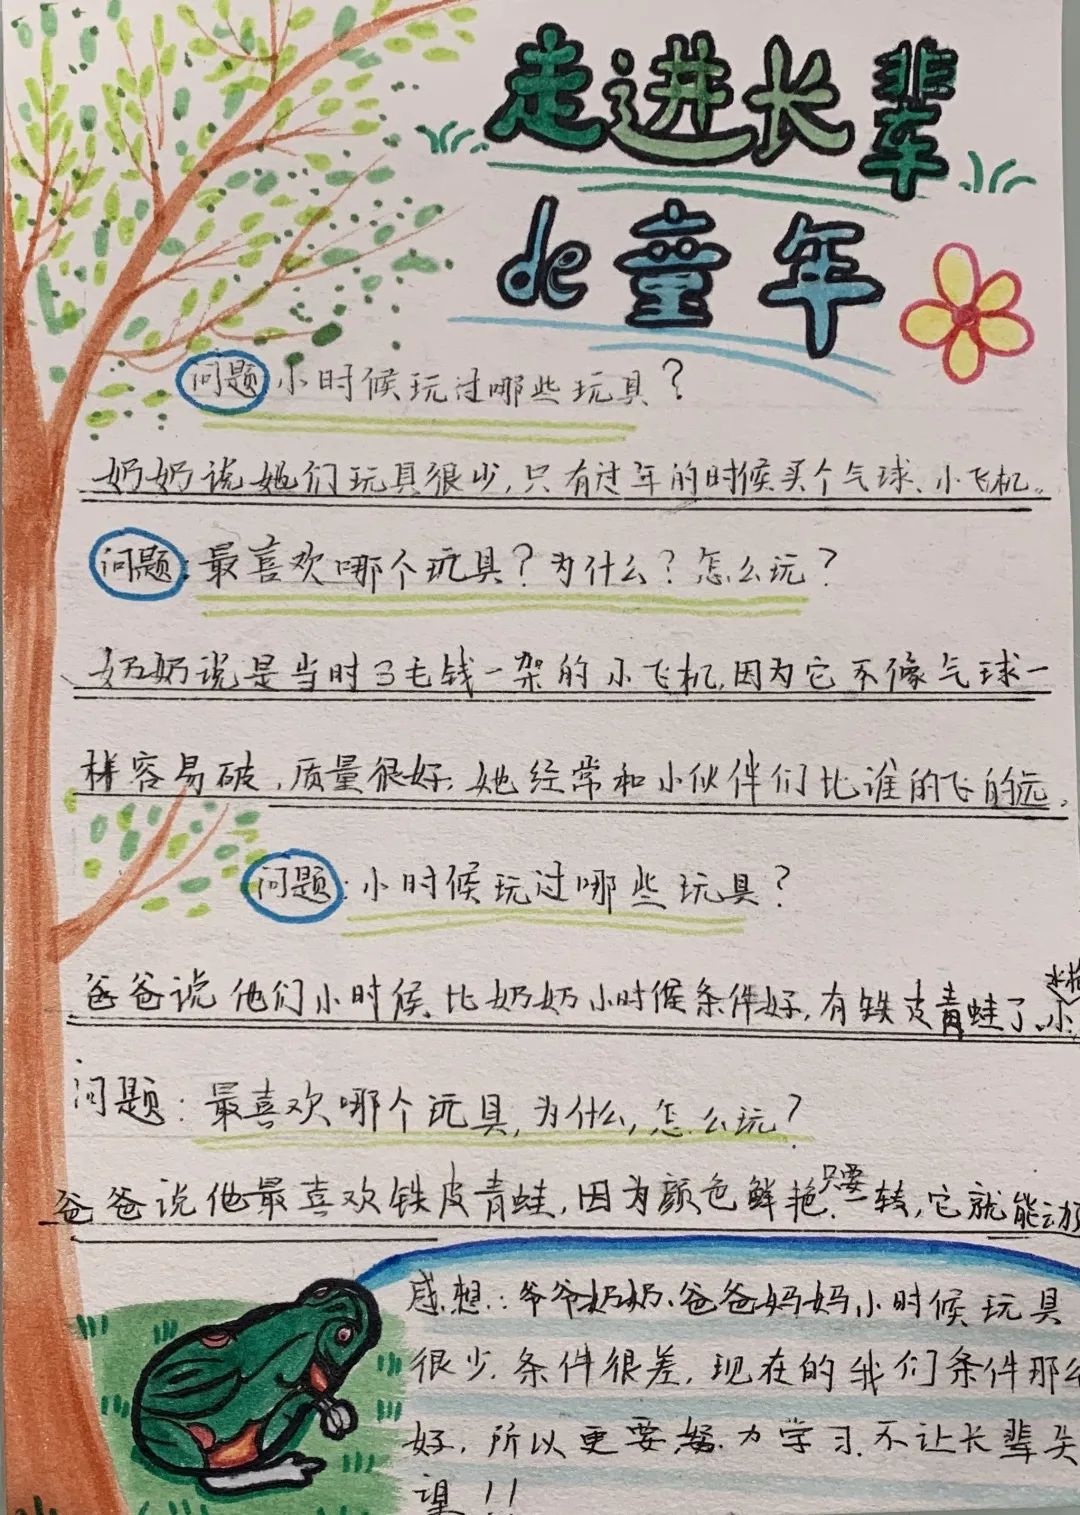 走进长辈
de童年
问题 小时候玩过哪些玩具？
奶奶说她们玩具很少，只有过年的时候买个气球、小飞机。
问题：最喜欢哪个玩具？为什么？怎么玩？
奶奶说是当时3毛钱一架的小飞机，因为它不像气球一
样容易破，质量很好。她经常和小伙伴们比谁的飞的远。
问题：小时候玩过哪些玩具？
爸爸说他们小时候、比奶奶小时候条件好，有铁皮青蛙了、小
问题：最喜欢哪个玩具，为什么，怎么玩？
爸爸说他最喜欢铁皮青蛙，因为颜色鲜艳，只要一转，它就能动
感想：爷爷奶奶、爸爸妈妈小时候玩具
很少，条件很差，现在的我们条件那么
好，所以更要努力学习，不让长辈失
望！！